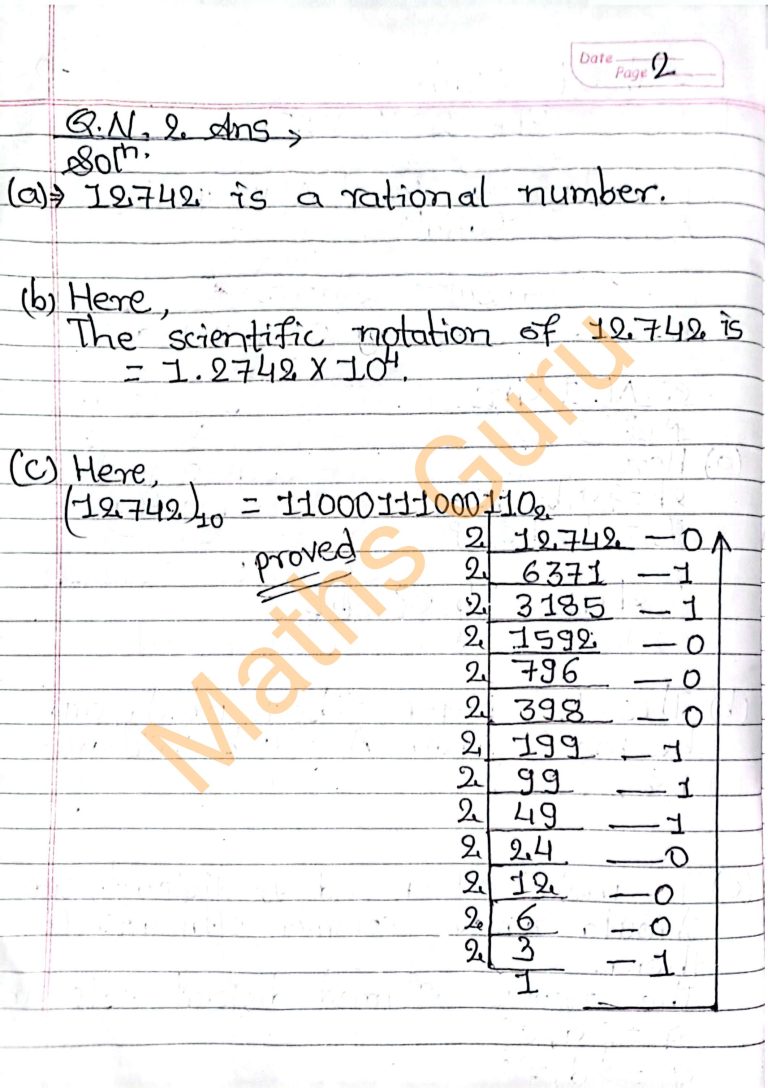 Date
Page 2
Q.N. 2 Ans →
Solⁿ.
(a)⇒ 12742 is a rational number.
(b) Here,
The scientific notation of 12742 is
= 1.2742 × 10⁴.
(c) Here,
(12742)₁₀ = 11000111000110₂
proved
2 12742 — 0
2 6371 — 1
2 3185 — 1
2 1592 — 0
2 796 — 0
2 398 — 0
2 199 — 1
2 99 — 1
2 49 — 1
2 24 — 0
2 12 — 0
2 6 — 0
2 3 — 1
1
Maths Guru